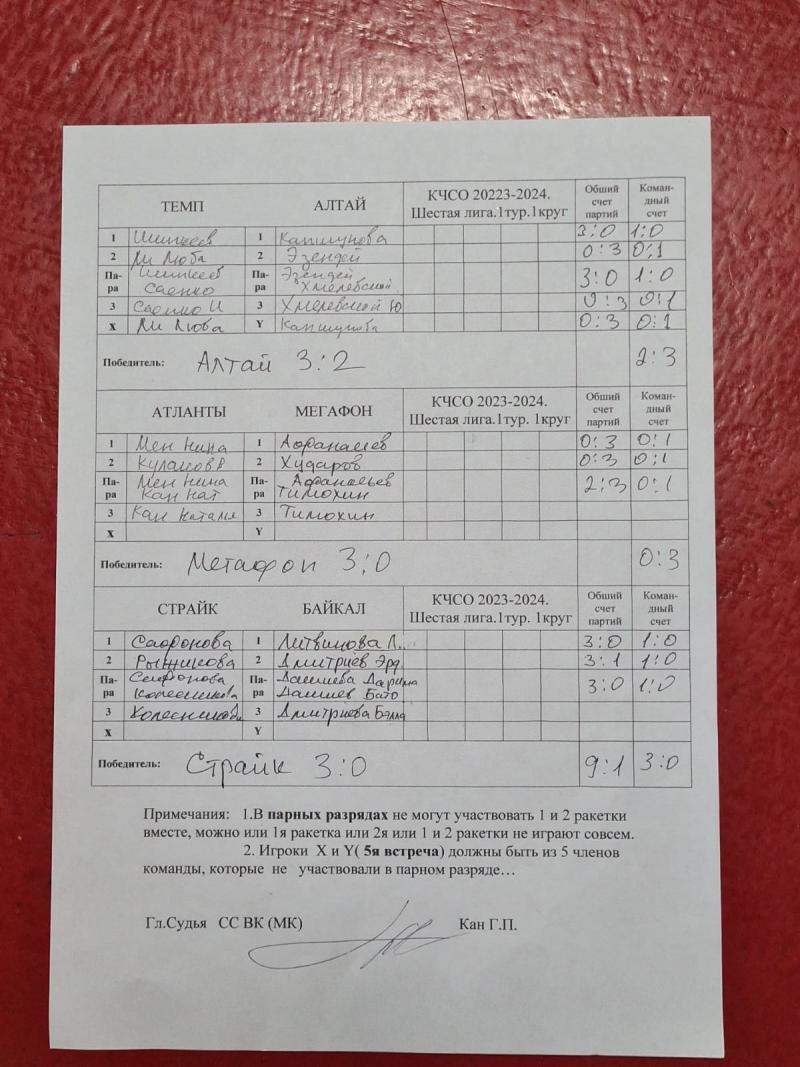 ТЕМП АЛТАЙ КЧСО 20223-2024. Шестая лига.1тур.1круг Общий счет партий Коман-дный счет
1 Шипкеев 1 Капшунова 3:0 1:0
2 Ли Люба 2 Эзендей 0:3 0:1
Па-ра Шипкеев Саенко Па-ра Эзендей Хмелевской 3:0 1:0
3 Саенко И 3 Хмелевской Ю 0:3 0:1
X Ли Люба Y Капшунова 0:3 0:1
Победитель: Алтай 3:2 2:3
АТЛАНТЫ МЕГАФОН КЧСО 2023-2024. Шестая лига.1тур. 1круг Общий счет партий Коман-дный счет
1 Мен Нина 1 Афанасьев 0:3 0:1
2 2 Хударов 0:3 0:1
Па-ра Мен Нина Кан Нат Па-ра Афанасьев Тимохин 2:3 0:1
3 Кан Наталья 3 Тимохин
X Y
Победитель: Мегафон 3:0 0:3
СТРАЙК БАЙКАЛ КЧСО 2023-2024. Шестая лига.1тур. 1круг Общий счет партий Коман-дный счет
1 Сафонова 1 Литвинова Л.. 3:0 1:0
2 Рыжикова 2 Дмитриев Эрд. 3:1 1:0
Па-ра Сафонова Колесникова Па-ра Дашиева Дарима Дашиев Бато 3:0 1:0
3 Колесникова 3 Дмитриева Бэлла
X Y
Победитель: Страйк 3:0 9:1 3:0
Примечания: 1.В парных разрядах не могут участвовать 1 и 2 ракетки
вместе, можно или 1я ракетка или 2я или 1 и 2 ракетки не играют совсем.
2. Игроки X и Y( 5я встреча) должны быть из 5 членов
команды, которые не участвовали в парном разряде…
Гл.Судья СС ВК (МК) Кан Г.П.